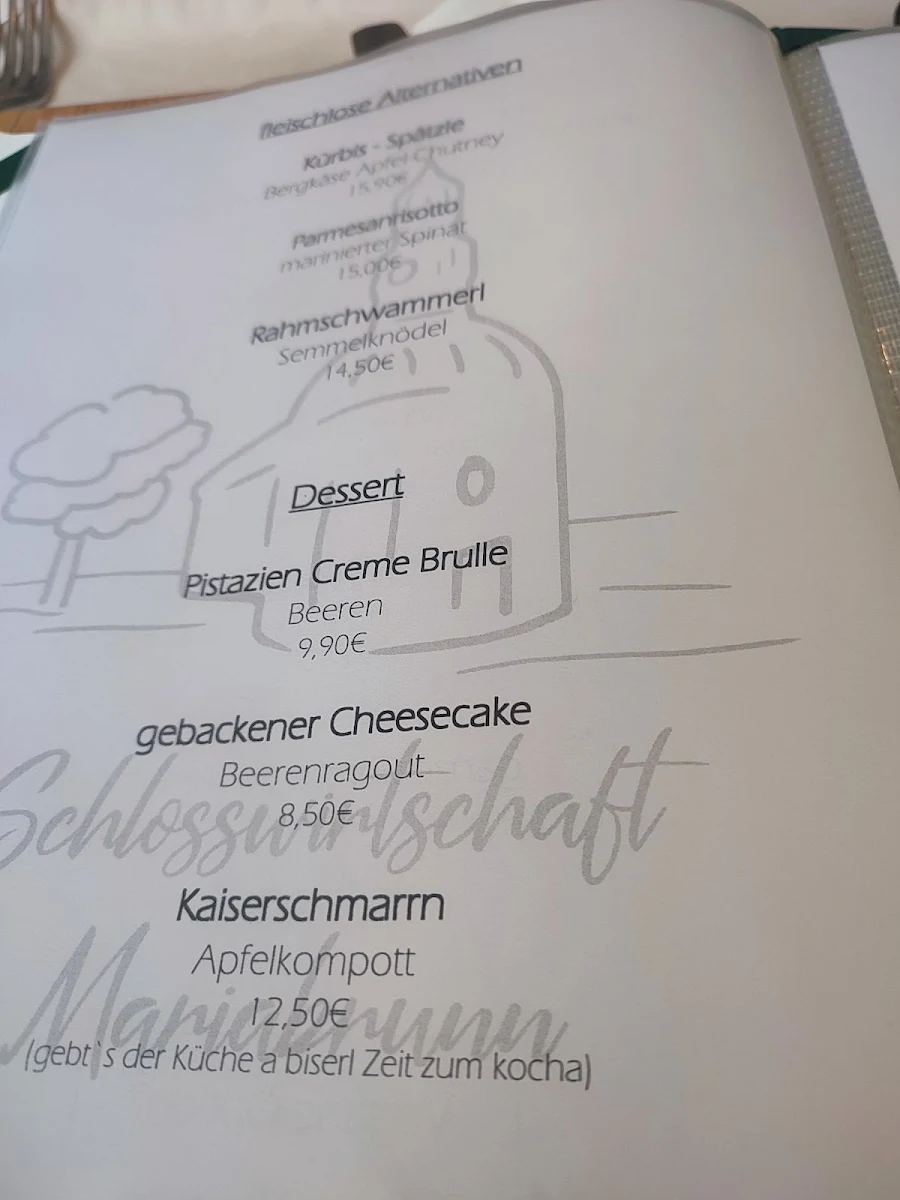 fleischlose Alternativen
Kürbis - Spätzle
Bergkäse Apfel Chutney
15,90€
Parmesanrisotto
marinierter Spinat
15,00€
Rahmschwammerl
Semmelknödel
14,50€
Dessert
Pistazien Creme Brulle
Beeren
9,90€
gebackener Cheesecake
Beerenragout
8,50€
Schlosswirtschaft
Kaiserschmarrn
Apfelkompott
12,50€
Mariabrunn
(gebt`s der Küche a biserl Zeit zum kocha)